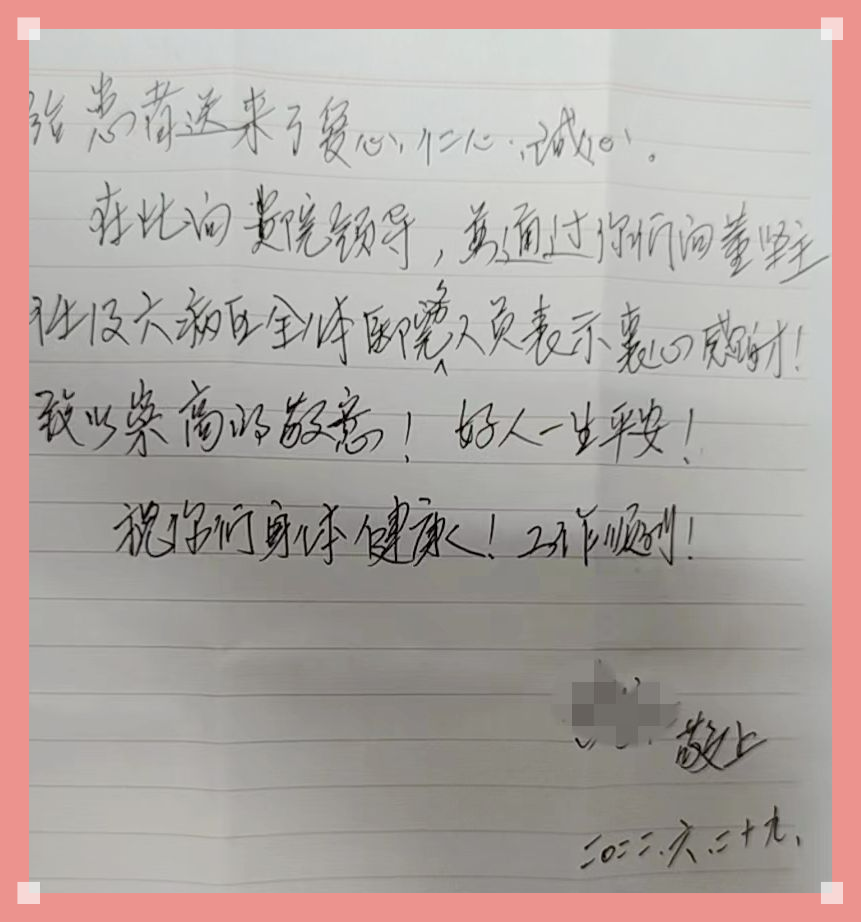 给患者送来了爱心,仁心,诚心。
在此向贵院领导,并通过你们向董坚主
任及六病区全体医务人员表示衷心感谢!
致以崇高的敬意!好人一生平安!
祝你们身体健康!工作顺利!
敬上
二〇二二.六.二十九、